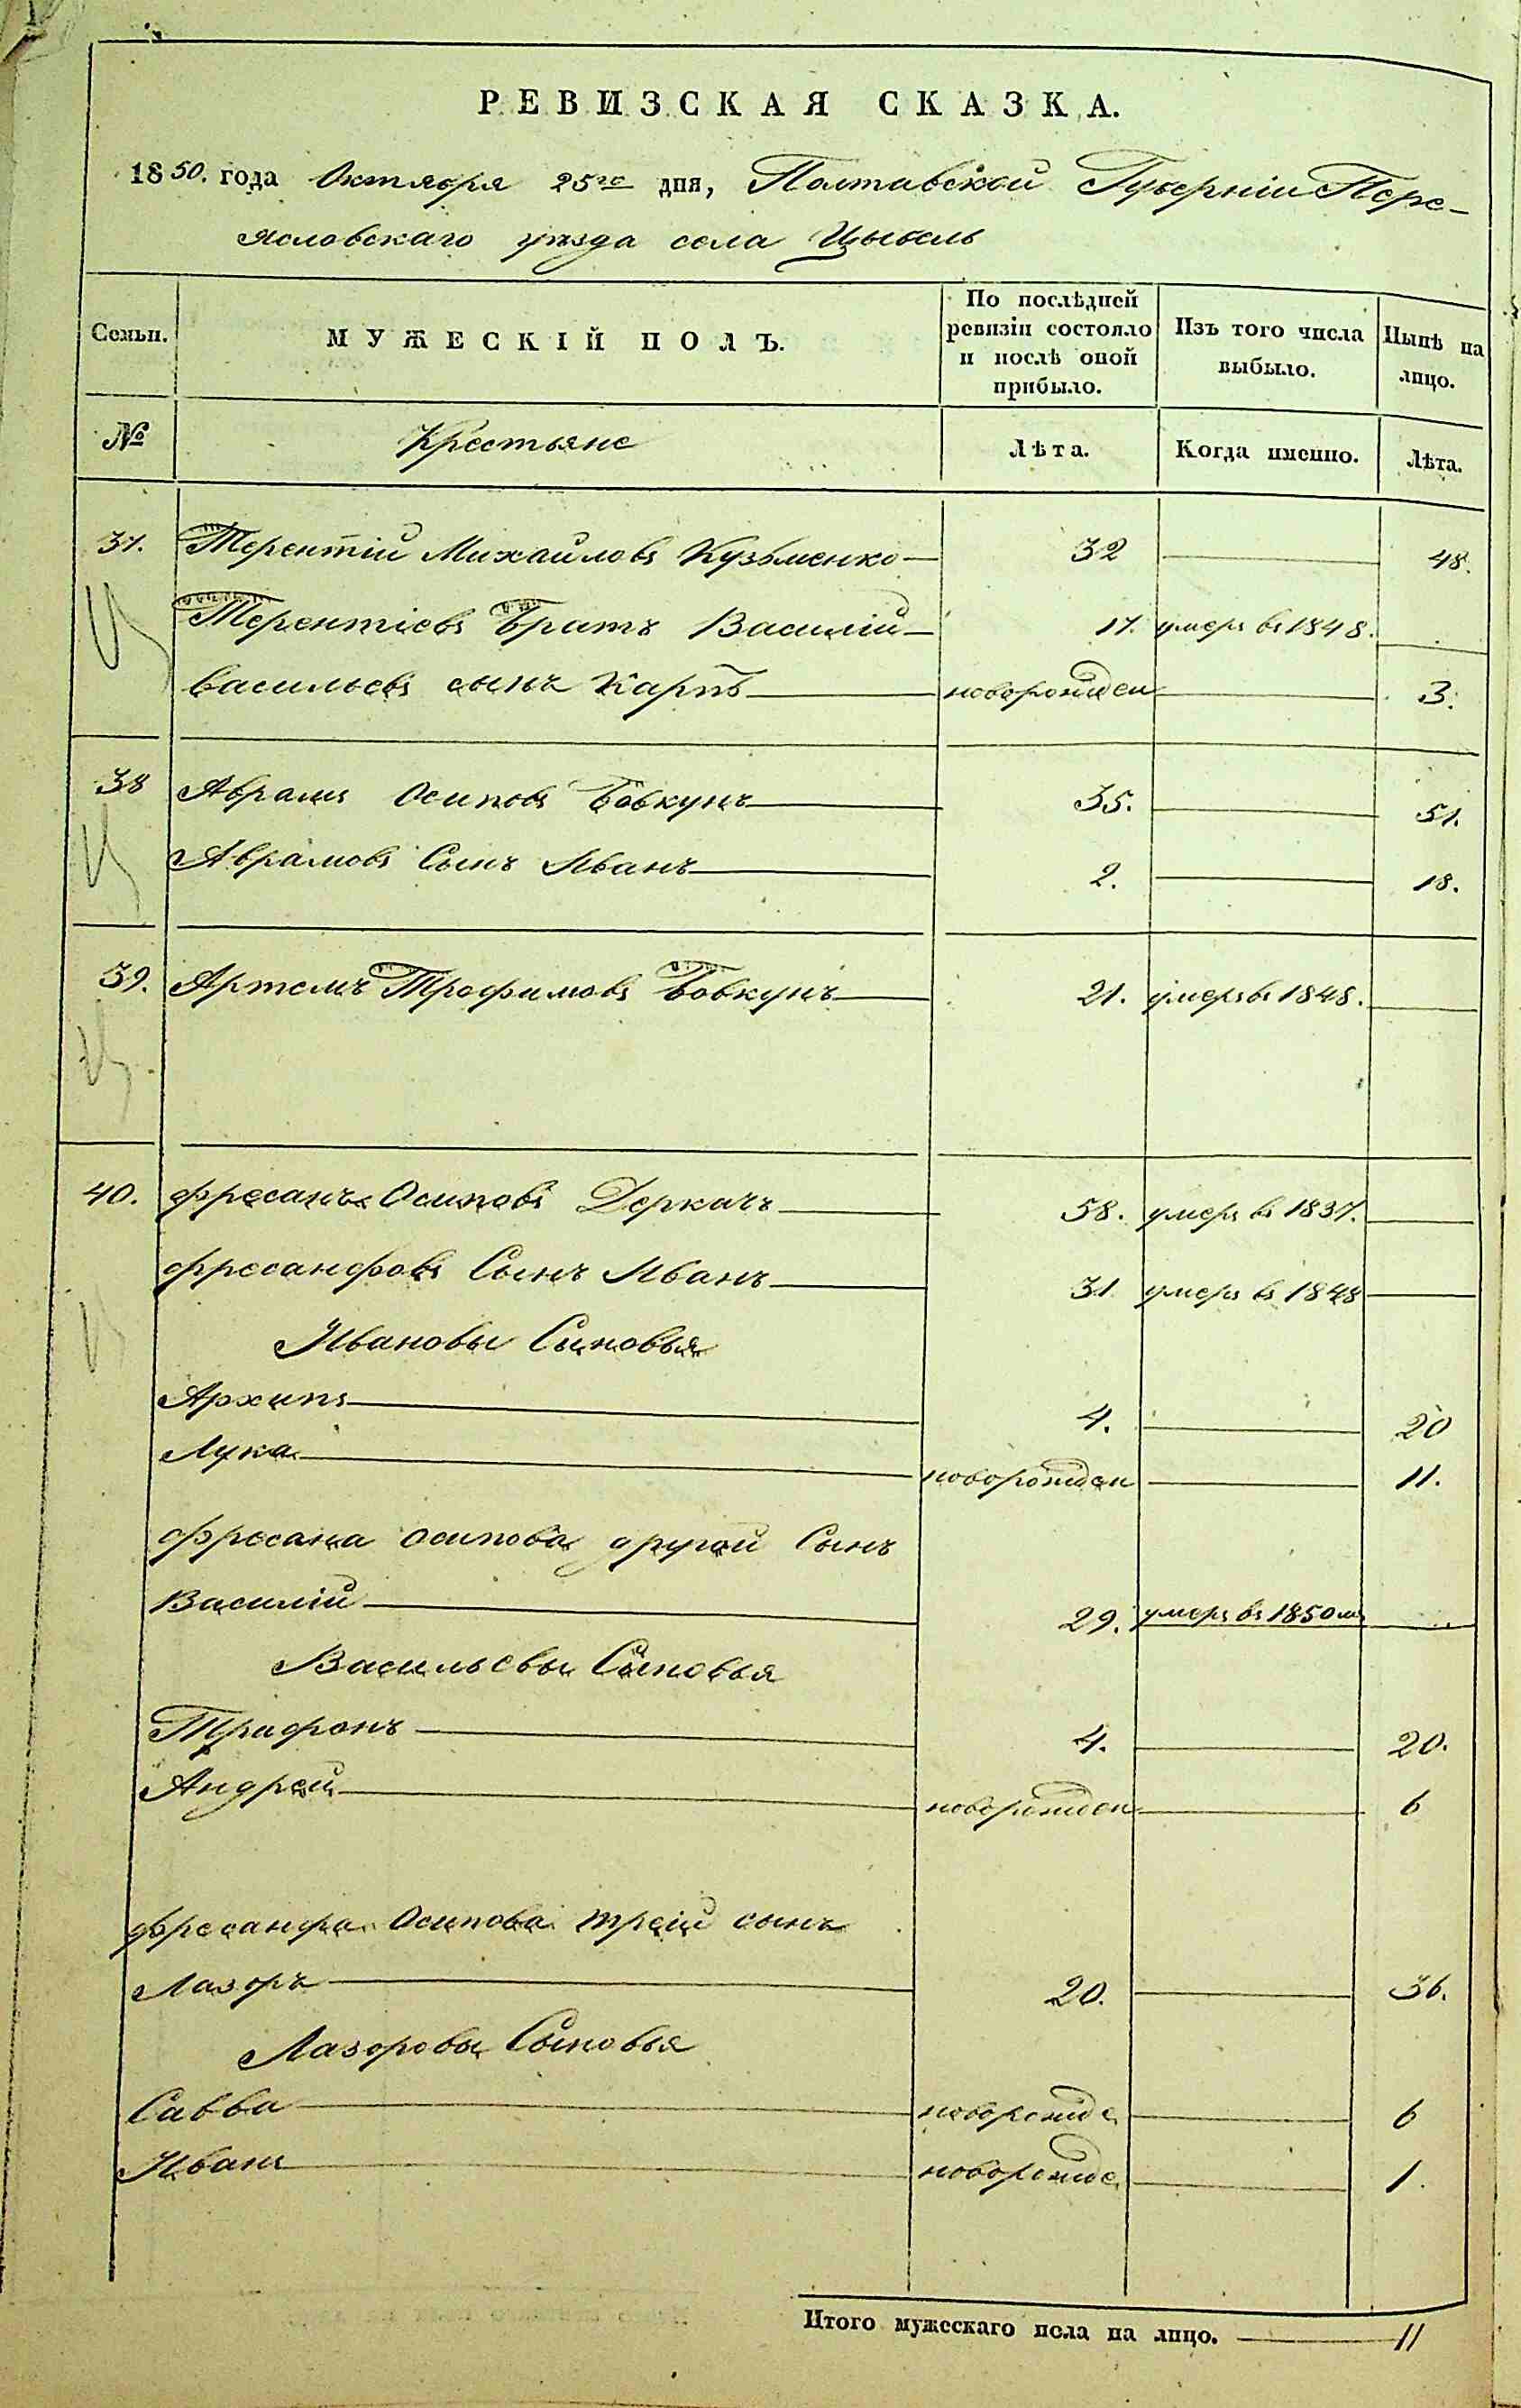 РЕВИЗСКАЯ СКАЗКА.
1850. года Октября 25го дня, Полтавской Губерніи Пере-
ясловскаго уезда села Цыбель
Семьи.
МУЖЕСКІЙ ПОЛЪ.
По послѣдней ревизіи состояло и послѣ оной прибыло.
Изъ того числа выбыло.
Нынѣ на лицо.
№
Крестьяне
Лѣта.
Когда именно.
Лѣта.
37. Терентій Михайловъ Кузьменко 32 48.
Терентіевъ братъ Василій 17. умеръ въ 1848.
Васильевъ сынъ Карпъ новорожден 3.
38 Аврамъ Осиповъ Бовкунъ 35. 51.
Аврамовъ Сынъ Иванъ 2. 18.
39. Артемъ Трофимовъ Бовкунъ 21. умеръ въ 1848.
40. Осиповъ Деркачъ 58. умеръ въ 1837.
Сынъ Иванъ 31 умеръ въ 1848
Ивановы Сыновья
Архипъ 4. 20
Лука новорожден 11.
Осипова другой Сынъ
Василій 29. умеръ въ 1850мъ
Васильевы Сыновья
Трифонъ 4. 20.
Андрей новорожден 6
Осипова трeій сынъ
Лазоръ 20. 36.
Лазоровы Сыновья
Савва новорожде 6
Иванъ новорожде 1.
Итого мужескаго пола на лицо. 11